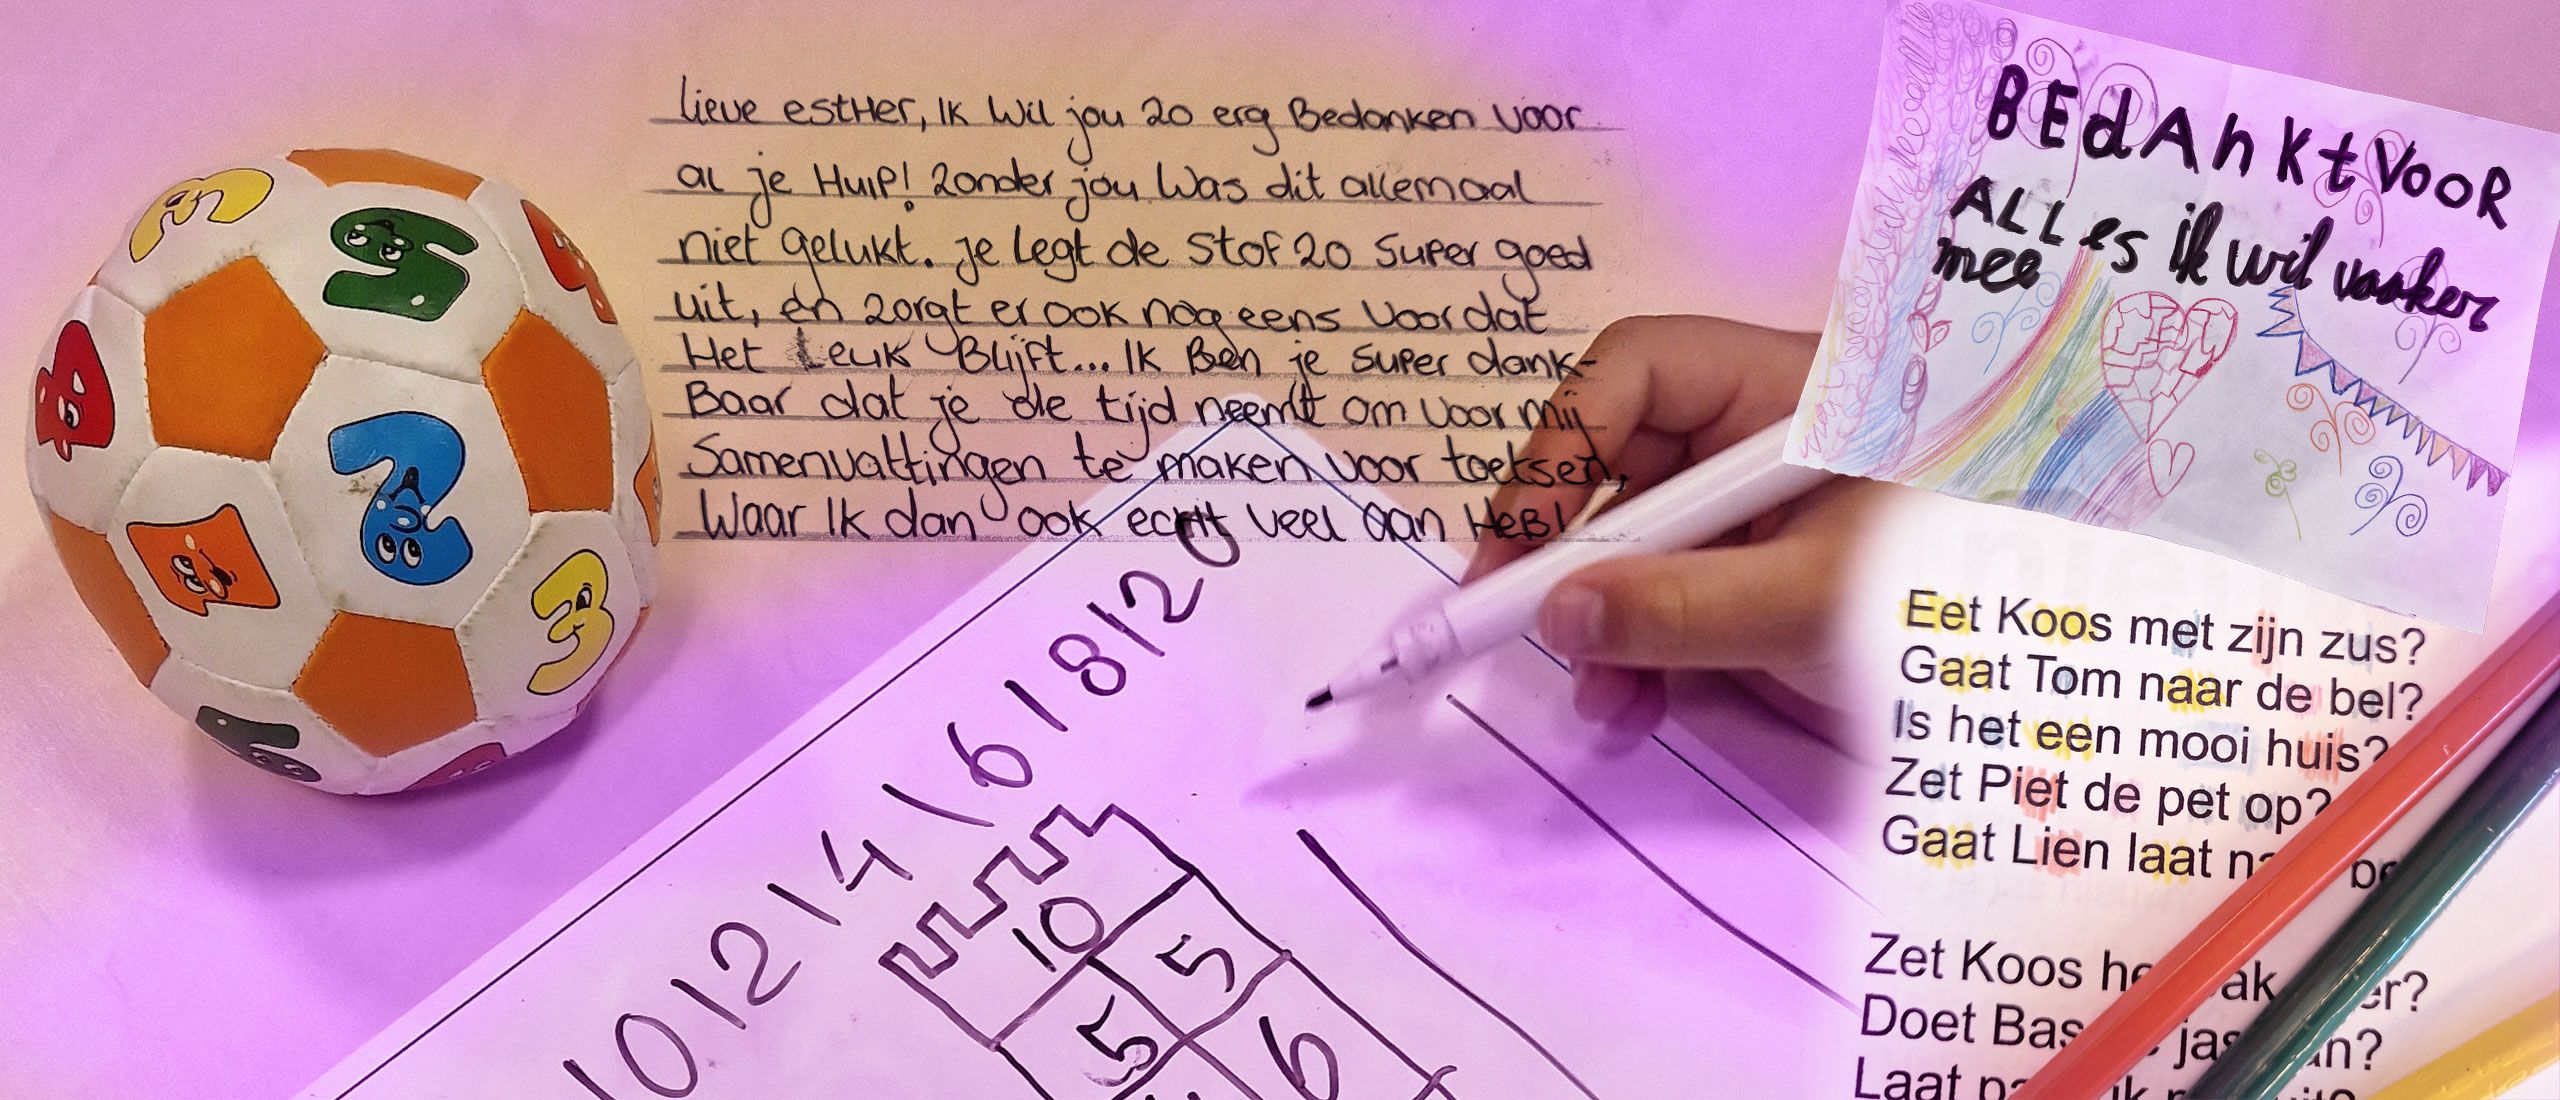 lieve estHer, Ik Wil jou zo erg Bedanken voor
al je HulP! Zonder jou Was dit allemaal
niet gelukt. je legt de Stof zo super goed
uit, en zorgt er ook nog eens voor dat
Het Leuk Blijft... Ik Ben je super dank-
Baar dat je de tijd neemt om voor mij
Samenvattingen te maken voor toetsen,
Waar Ik dan ook echt veel aan HeB!
BEdAnKt VooR
ALLes ik wil vaaker
mee
Eet Koos met zijn zus?
Gaat Tom naar de bel?
Is het een mooi huis?
Zet Piet de pet op?
Gaat Lien laat
Zet Koos
Doet Bas
Laat
10 12 14 16 18 20
10 5
5 6
2
3